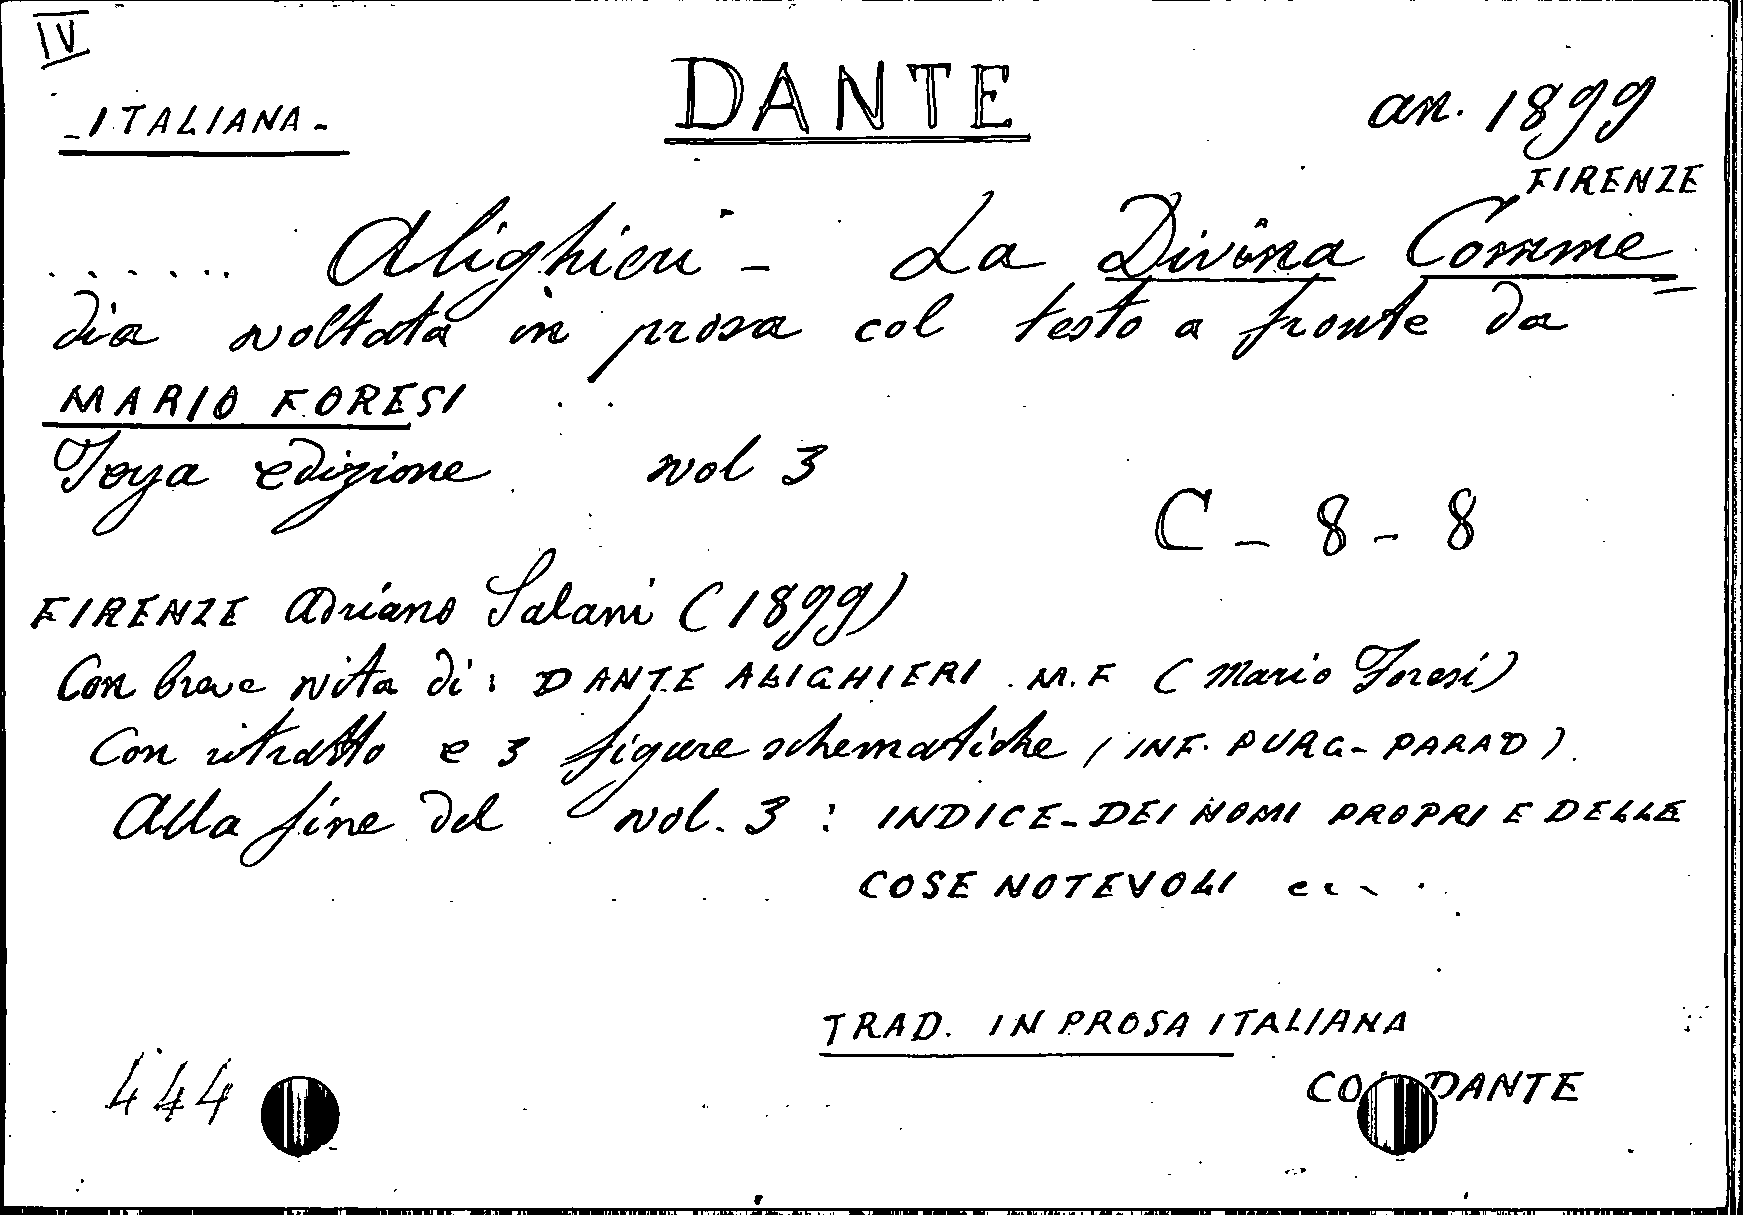 IV
DANTE
- ITALIANA -
an. 1899
FIRENZE
...... Alighieri - La Divina Comme
dia voltata in prosa col testo a fronte da
MARIO FORESI
edizione vol 3
C - 8 - 8
FIRENZE Adriano Salani (1899)
Con breve vita di: DANTE ALIGHIERI. M.F (Mario Foresi)
Con ritratto e 3 figure schematiche (INF. PURG - PARAD).
Alla fine del vol. 3 : INDICE - DEI NOMI PROPRI E DELLE
COSE NOTEVOLI
TRAD. IN PROSA ITALIANA
444
DANTE